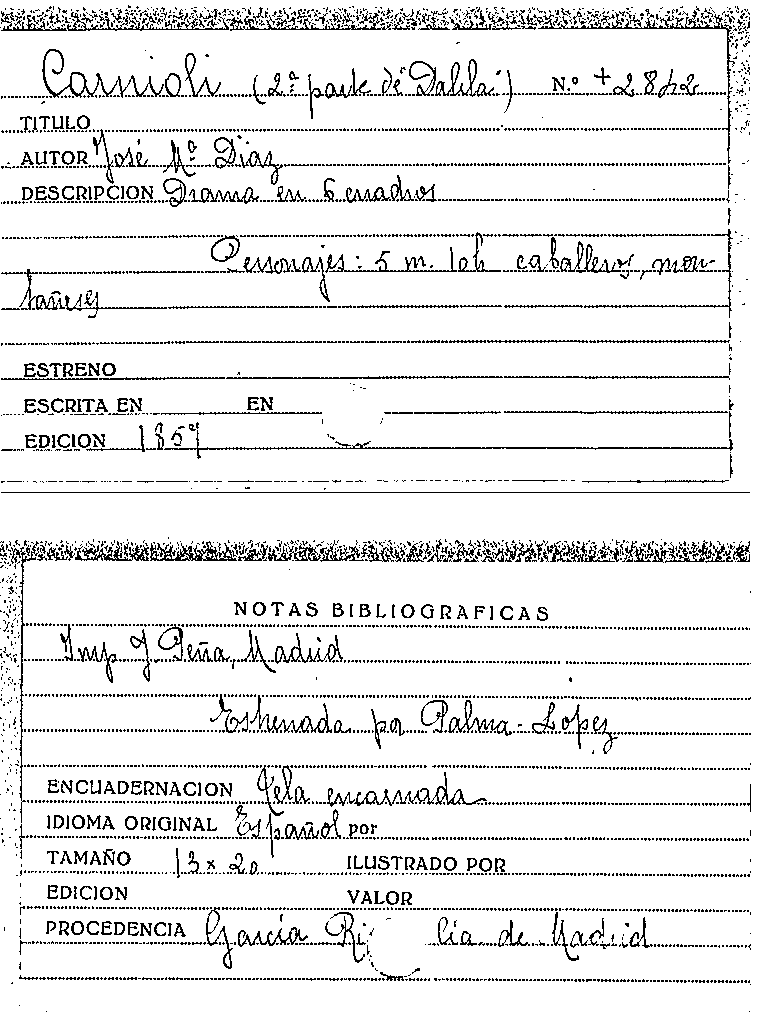 Carnioli (2ª parte de "Dalila") N.º +2842
TITULO
AUTOR José Mª Diaz
DESCRIPCION Drama en 6 cuadros
Personajes: 5 m. 10h caballeros, mon-
tañeses
ESTRENO
ESCRITA EN EN
EDICION 1859
NOTAS BIBLIOGRAFICAS
Imp J. Peña, Madrid
Estrenada por Palma-López
ENCUADERNACION Tela encarnada
IDIOMA ORIGINAL Español por
TAMAÑO 13 x 20 ILUSTRADO POR
EDICION VALOR
PROCEDENCIA García Ri cia de Madrid